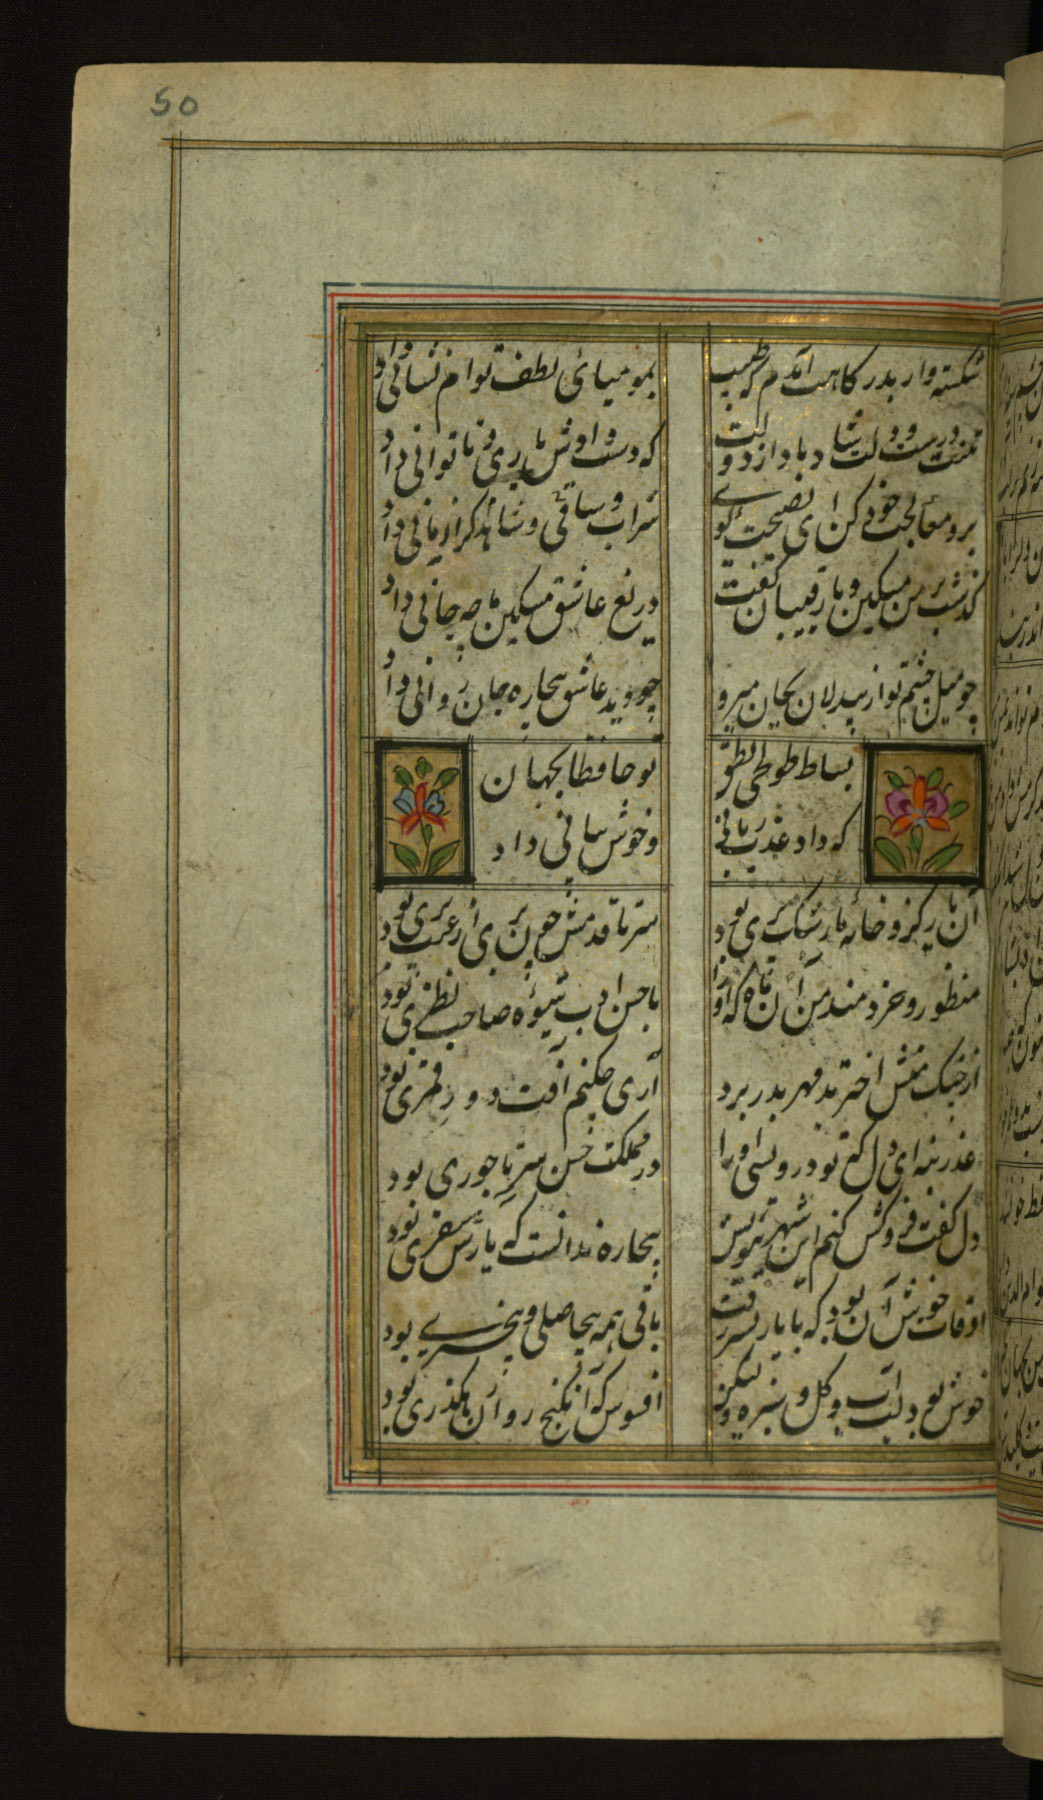 50
شکسته وار بدرگاهت آمدم که طبیب
بمومیائی لطف توام نشانی داد
تنت درست و دلت شاد باد از دولت
که دست دادش و یاری ناتوانی داد
برو معالجت خود کن ای نصیحت گوی
شراب و ساقی و شاهد کرا زیانی داد
گذشت بر من مسکین و با رقیبان گفت
دریغ عاشق مسکین ما چه جانی داد
چو میل چشم تو از بیدلان بجان میرود
چو دید عاشق بیچاره جان روانی داد
بساط طوطی نطق
تو حافظا بجهان
که داد عذب زبانی
و خوش بیانی داد
آن یار کزو خانه ما رشک پری بود
سر تا قدمش چون پری از عیب بری بود
منظور خردمند من آن ماه که او را
با حسن ادب شیوه صاحب نظری بود
از چنگ منش اختر بد مهر بدر برد
آری چکنم آفت دور قمری بود
عذر بنه ای دل که تو درویشی او را
در مملکت حسن سر تاجوری بود
دل گفت فروکش کنم این شهر ببویش
بیچاره ندانست که یارش سفری بود
اوقات خویش آن بود که با یار بسر رفت
باقی همه بیحاصلی و بیخبری بود
خوش بود لب آب و گل و سبزه ولیکن
افسوس که آن گنج روان رهگذری بود